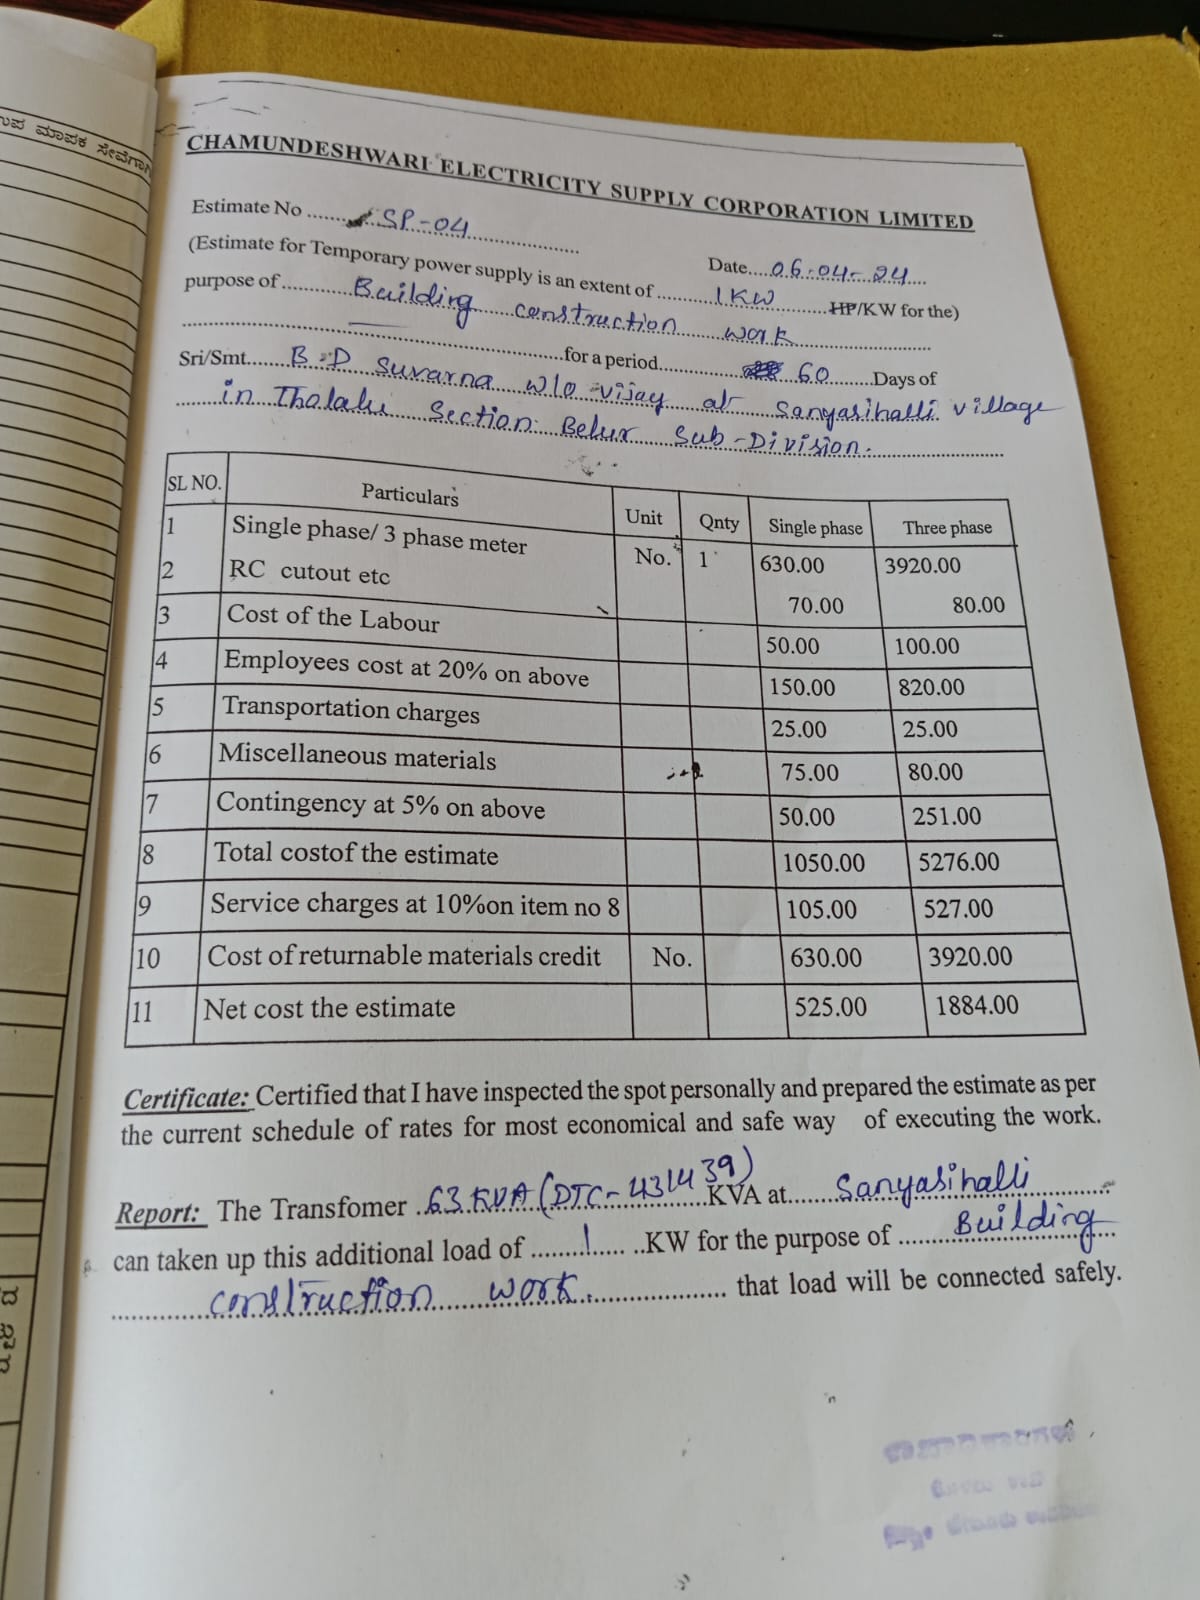 ಉಪ ಮಾಪಕ
CHAMUNDESHWARI ELECTRICITY SUPPLY CORPORATION LIMITED
Estimate No ........SP-04....................
Date....06-04-24....
(Estimate for Temporary power supply is an extent of ..........1KW..........HP/KW for the)
purpose of ............Building construction work..............................
..........................................................for a period................60.........Days of
Sri/Smt.......B.D Suvarna w/o vijay at Sanyasihalli village
in Thalalu Section Belur Sub-Division.
SL NO. Particulars Unit Qnty Single phase Three phase
1 Single phase/ 3 phase meter No. 1 630.00 3920.00
2 RC cutout etc 70.00 80.00
3 Cost of the Labour 50.00 100.00
4 Employees cost at 20% on above 150.00 820.00
5 Transportation charges 25.00 25.00
6 Miscellaneous materials 75.00 80.00
7 Contingency at 5% on above 50.00 251.00
8 Total costof the estimate 1050.00 5276.00
9 Service charges at 10%on item no 8 105.00 527.00
10 Cost of returnable materials credit No. 630.00 3920.00
11 Net cost the estimate 525.00 1884.00
Certificate: Certified that I have inspected the spot personally and prepared the estimate as per
the current schedule of rates for most economical and safe way of executing the work.
Report: The Transfomer .63 KVA (DTC-431439) KVA at.......Sanyasihalli..............
can taken up this additional load of ........1..... ..KW for the purpose of ........Building...
.............construction work...................... that load will be connected safely.